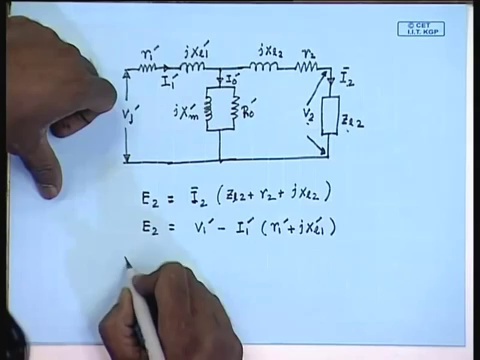 © CET
I.I.T. KGP
r₁′ jXℓ₁′ jXℓ₂ r₂
I₁′ I₀′ Ī₂
V₁′ jXₘ′ R₀′ V₂ Zℓ₂
E₂ = Ī₂ (Zℓ₂ + r₂ + jXℓ₂)
E₂ = V₁′ − I₁′ (r₁′ + jXℓ₁′)